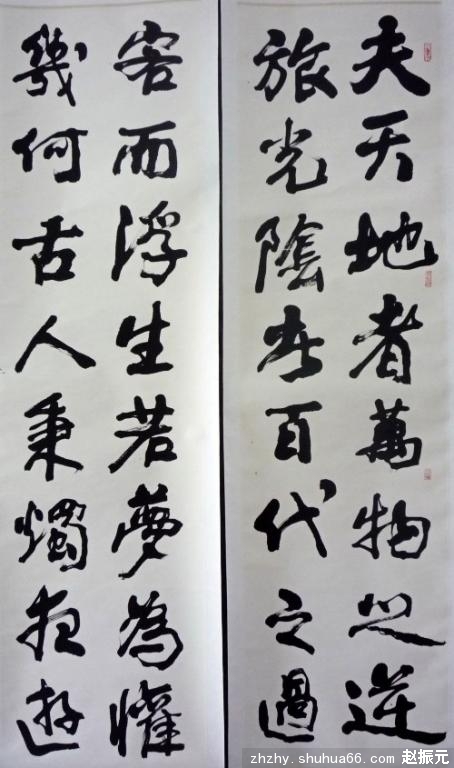 夫天地者萬物之逆
旅光陰者百代之過
客而浮生若夢為懽
幾何古人秉燭夜遊
zhzhy.shuhua66.com 赵振元